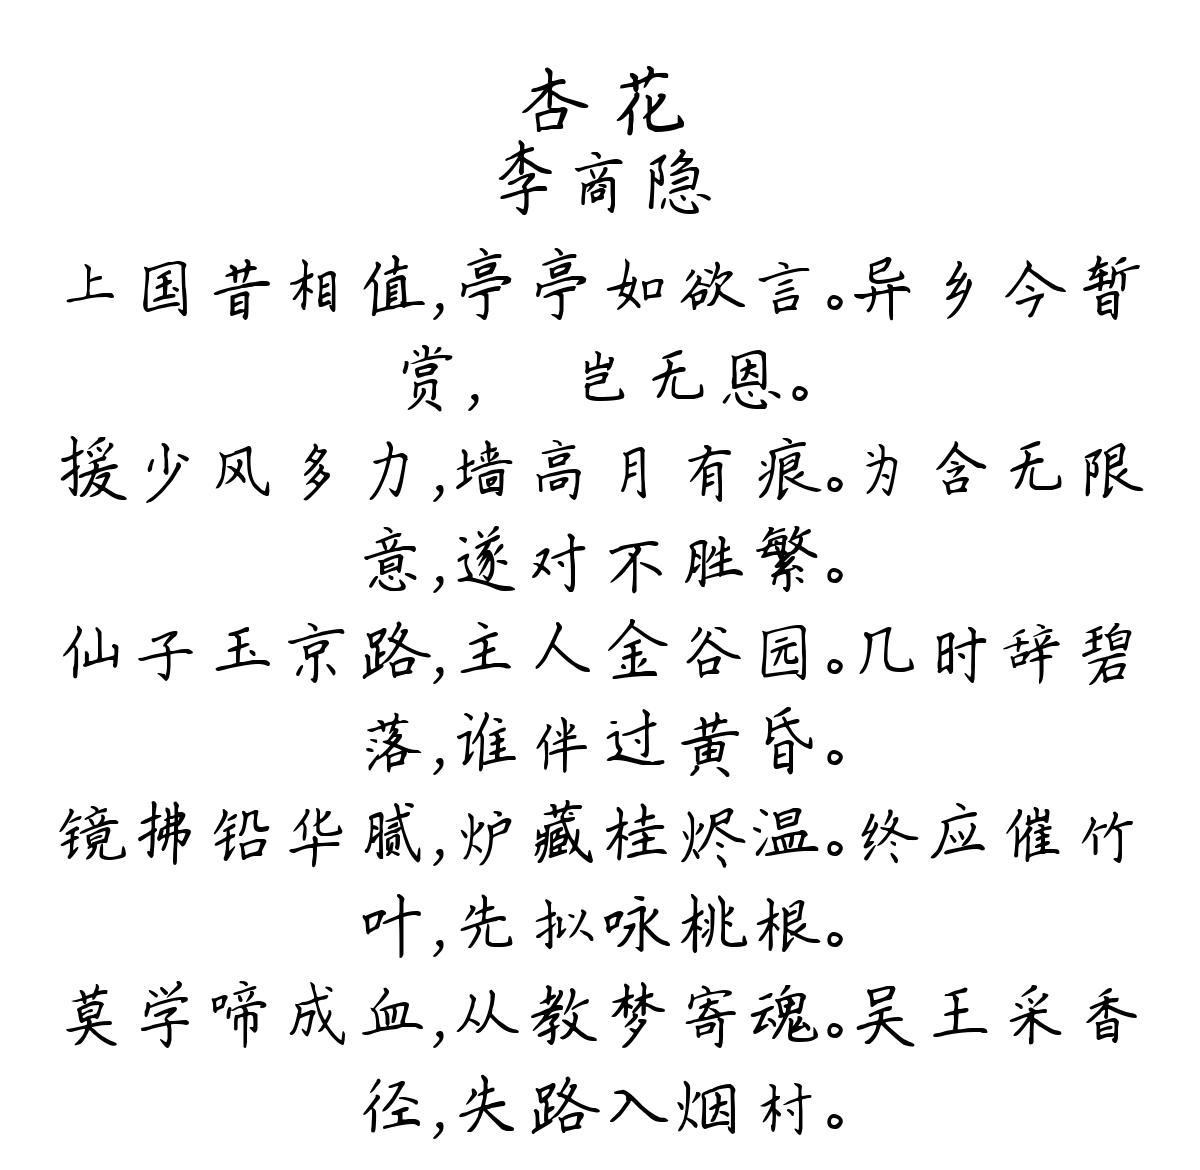 杏花
李商隐
上国昔相值,亭亭如欲言。异乡今暂
赏, 岂无恩。
援少风多力,墙高月有痕。为含无限
意,遂对不胜繁。
仙子玉京路,主人金谷园。几时辞碧
落,谁伴过黄昏。
镜拂铅华腻,炉藏桂烬温。终应催竹
叶,先拟咏桃根。
莫学啼成血,从教梦寄魂。吴王采香
径,失路入烟村。